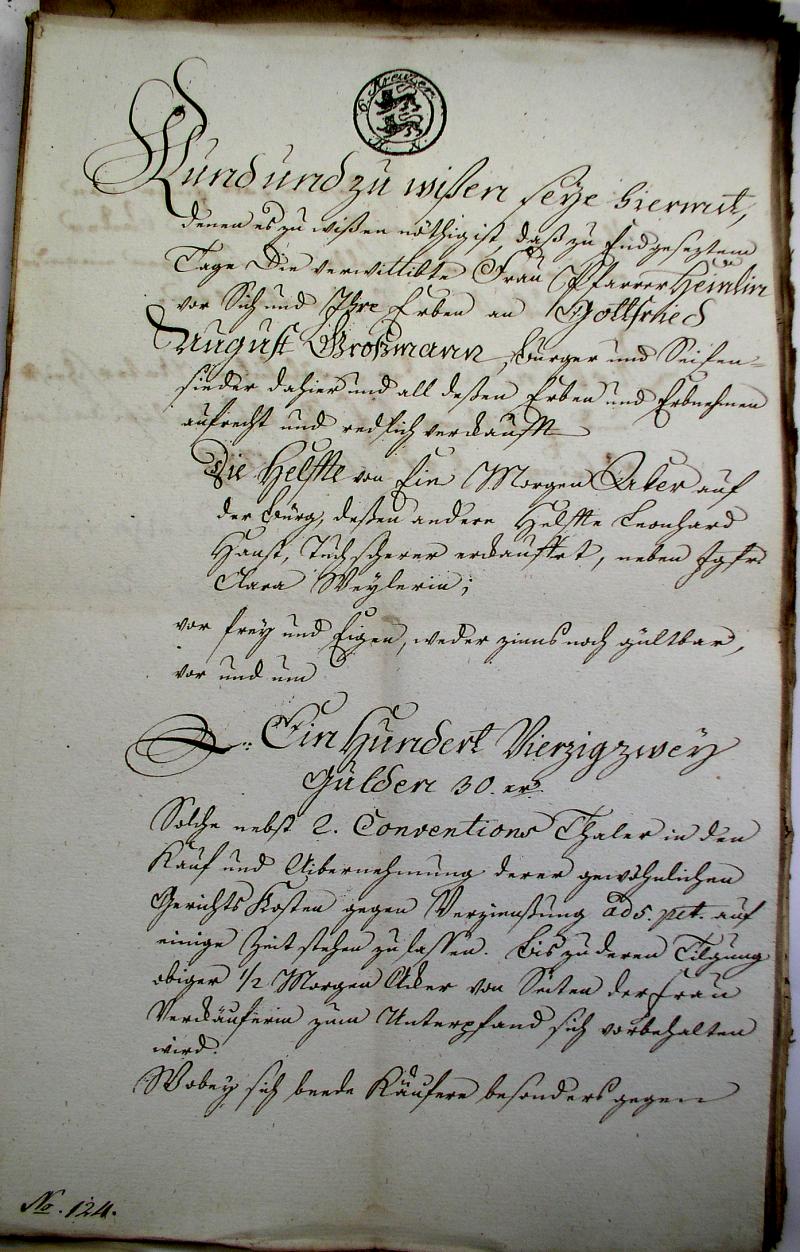 6. Kreuzer
K. N.
Kund und zu wißen seye hiermit,
denen es zu wißen nöthig ist, daß zu Endgeseztem
Tage die verwittibte Frau Pfarrer Hemlin
vor Sich und Ihre Erben an Gottfried
August Großmann, Burger und Seifen=
sieder dahier und all deßen Erben und Erbnehmen
aufrecht und redlich verkaufft
Die Helffte von Ein Morgen Aker auf
der Bürg, deßen andere Helffte Leonhard
Hanst, Tuchscherer erkauffet, neben Jgfr.
Clara Weylerin;
vor frey und Eigen, weder zinns noch gültbar,
vor und um
Ein Hundert Vierzig zwey
Gülden 30. xr.
Solche nebst 2. Conventions Thaler in den
Kauf und Uibernehmung derer gewöhnlichen
Gerichts Kosten gegen Verzienßung ad 5. pct. auf
einige Zeit stehen zu lassen. Bis zu deren Tilgung
obiger 1/2 Morgen Acker von Seiten der Frau
Verkäuferin zum Unterpfand sich vorbehalten
wird.
Wobey sich beede Käufere besonders gegen
No. 124.